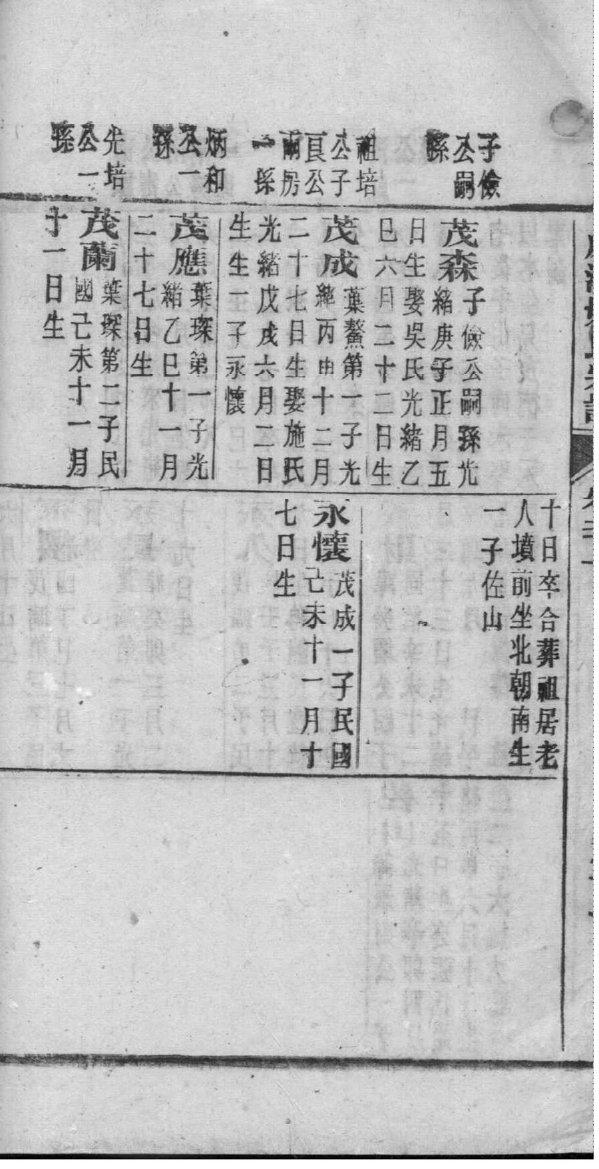 子儉
公嗣
孫
祖培
公子
良公
兩房
一孫
炳和
公一
孫
光培
公一
孫
茂森子儉公嗣孫光
緒庚子正月五
日生娶吳氏光緒乙
巳六月二十二日生
茂成葉鰲第一子光
緒丙申十二月
二十七日生娶施氏
光緒戊戌六月二日
生生一子永懷
茂應葉琛第一子光
緒乙巳十一月
二十七日生
茂蘭葉琛第二子民
國己未十一月
十一日生
十日卒合葬祖居老
人墳前坐北朝南生
一子佐山
永懷茂成一子民國
己未十一月十
七日生